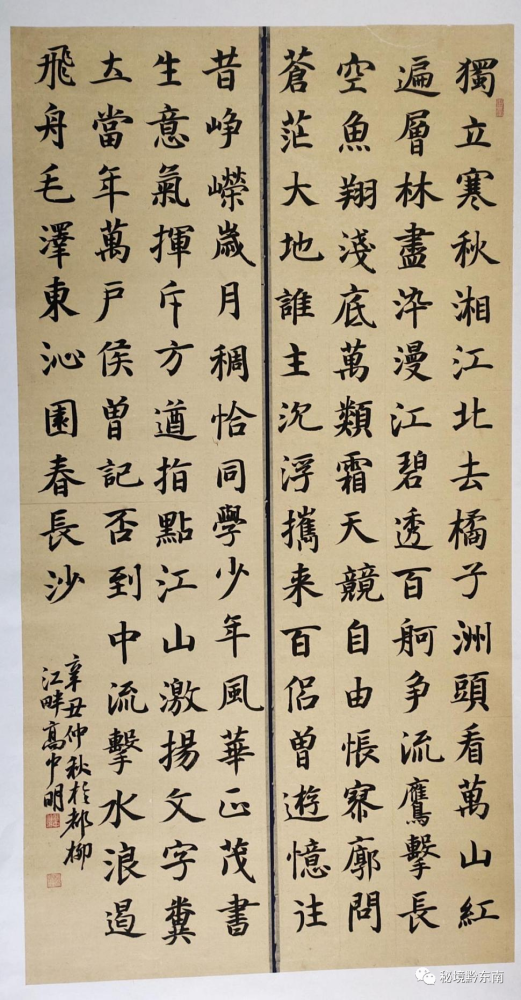 獨立寒秋湘江北去橘子洲頭看萬山紅
遍層林盡染漫江碧透百舸争流鷹擊長
空魚翔淺底萬類霜天競自由悵寥廓問
蒼茫大地誰主沉浮攜来百侣曾遊憶往
昔崢嶸歲月稠恰同學少年風華正茂書
生意氣揮斥方遒指點江山激揚文字糞
土當年萬戶侯曾記否到中流擊水浪遏
飛舟毛澤東沁園春長沙
辛丑仲秋於都柳
江畔高中明
秘境黔东南